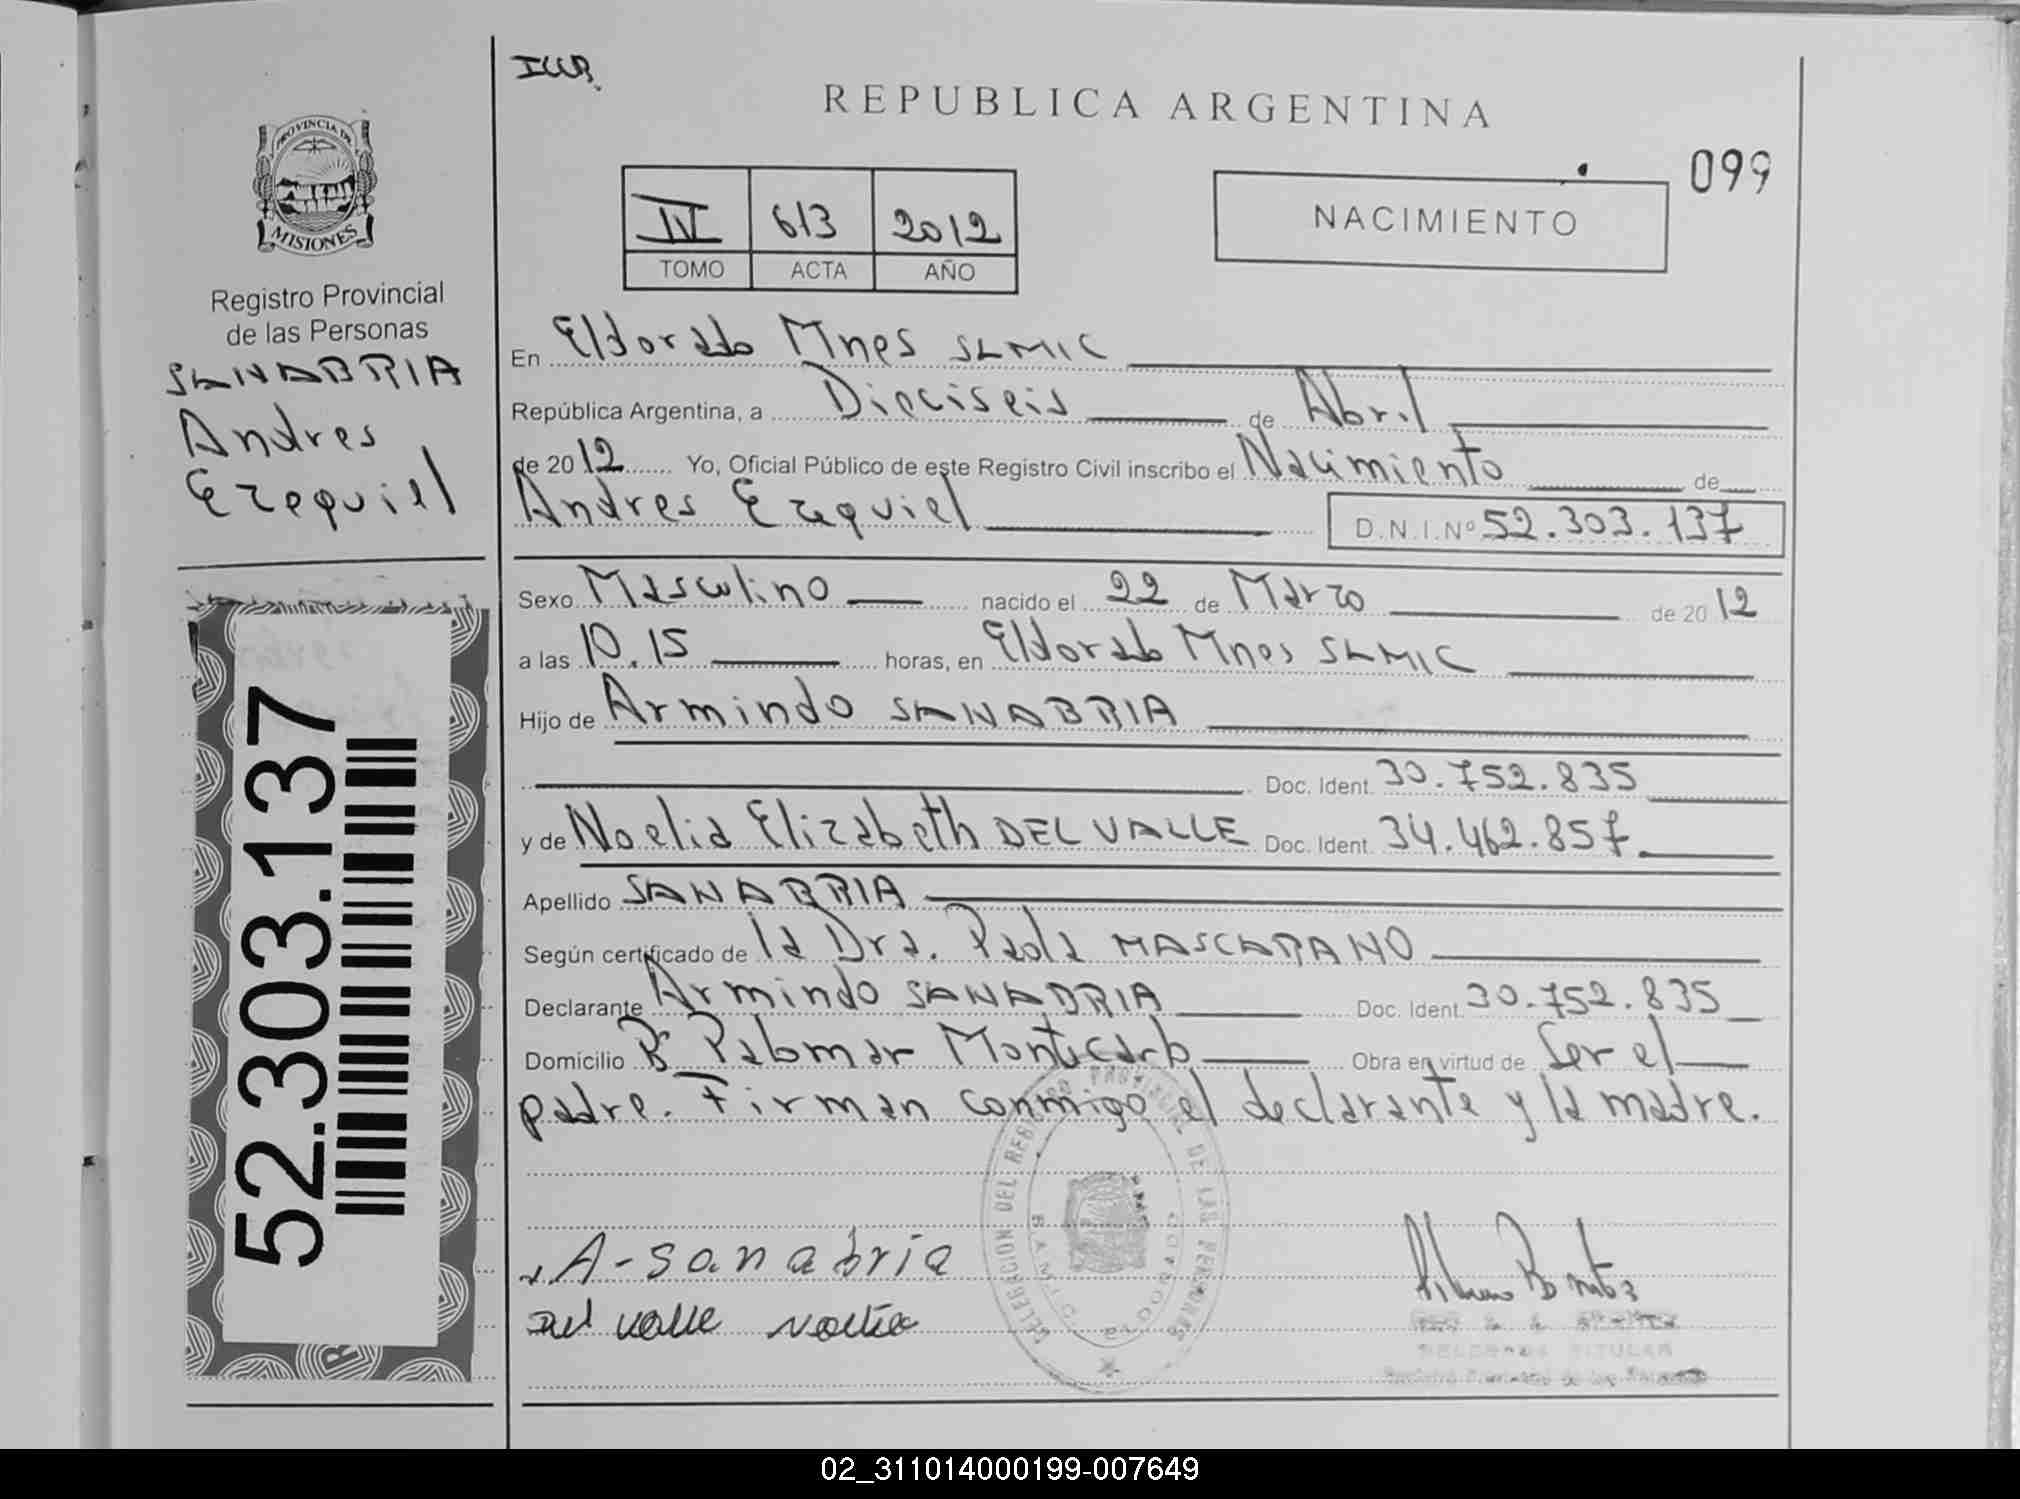 PROVINCIA DE
MISIONES
Registro Provincial
de las Personas
SANABRIA
Andres
Ezequiel
52.303.137
REPUBLICA ARGENTINA
099
IV 613 2012
TOMO ACTA AÑO
NACIMIENTO
En Eldorado Mnes SAMIC
República Argentina, a Dieciseis de Abril
de 2012 Yo, Oficial Público de este Registro Civil inscribo el Nacimiento de
Andres Ezequiel D.N.I.Nº 52.303.137
Sexo Masculino nacido el 22 de Marzo de 2012
a las 10.15 horas, en Eldorado Mnes SAMIC
Hijo de Armindo SANABRIA
Doc. Ident. 30.752.835
y de Noelia Elizabeth DEL VALLE Doc. Ident. 34.462.857
Apellido SANABRIA
Según certificado de la Dra. Paola MASCARANO
Declarante Armindo SANABRIA Doc. Ident. 30.752.835
Domicilio Bº Palomar Montecarlo Obra en virtud de Ser el
padre. Firman conmigo el declarante y la madre.
DELEGACION DEL REGISTRO PROVINCIAL DE LAS PERSONAS
SAMIC ELDORADO
A-sanabria
Del valle Noelia
TITULAR
02_311014000199-007649